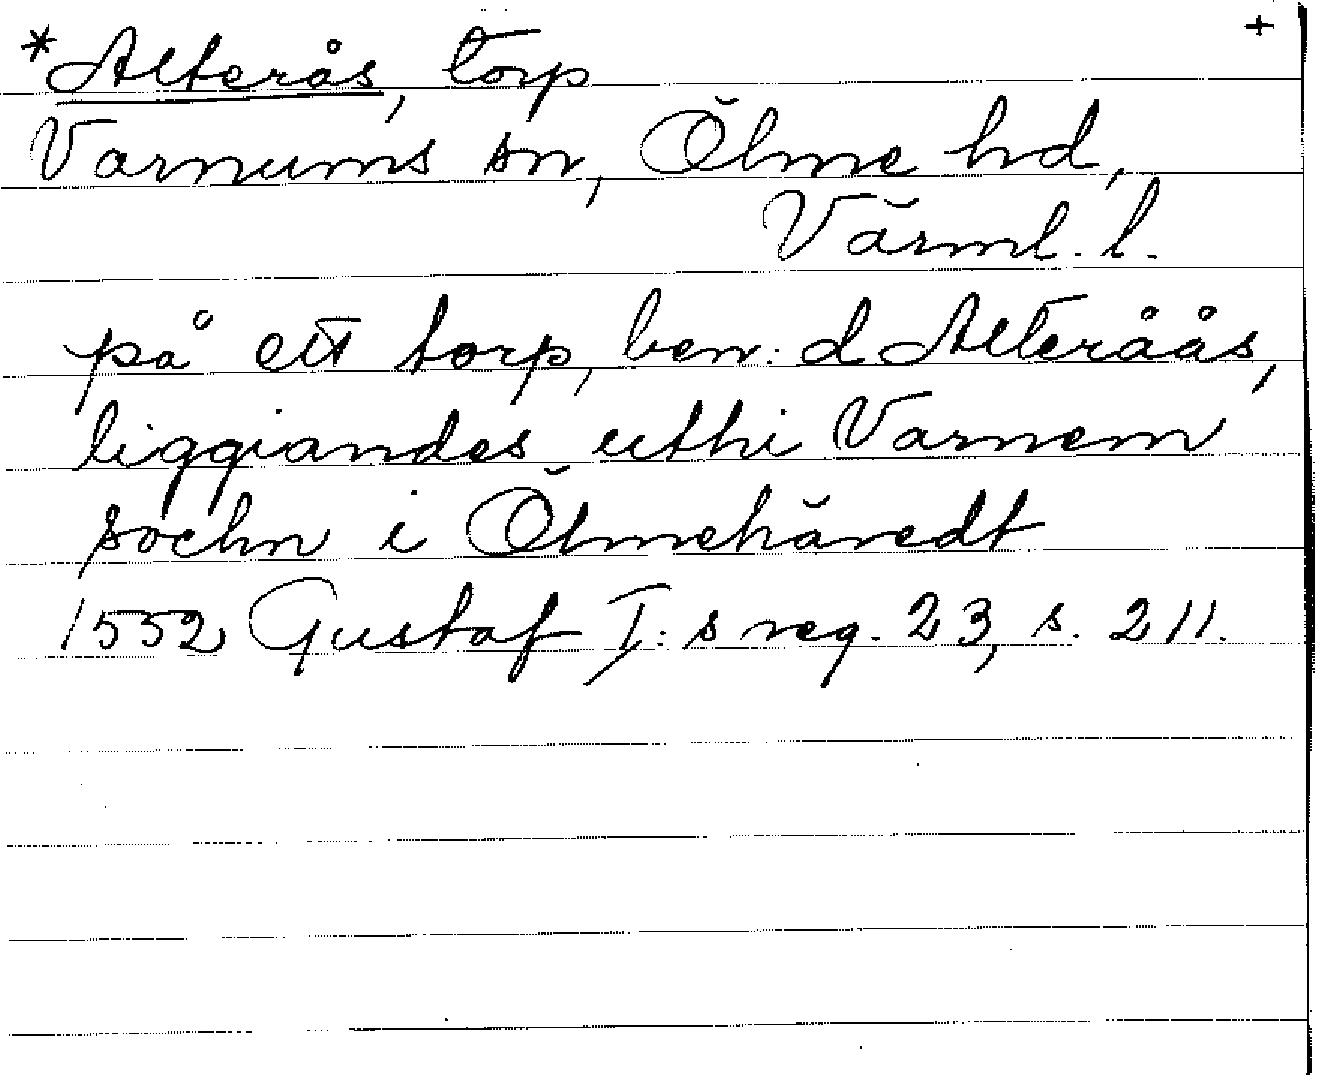 *Alterås, torp +
Varnums sn, Ölme hd,
Värml. l.
på ett torp, ben:d Alteråås,
liggiandes uthi Varnem
sochn i Ölmehäredt
1552 Gustaf I:s reg. 23, s. 211.